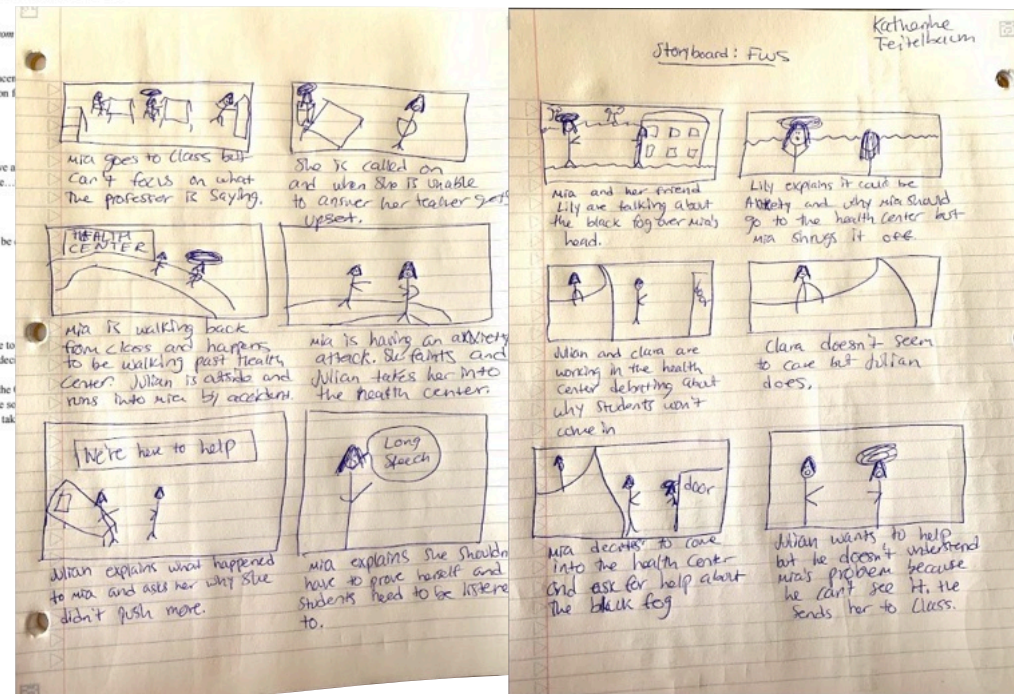 Mia goes to class but
can't focus on what
the professor is saying.
She is called on
and when she is unable
to answer her teacher gets
upset.
HEALTH
CENTER
Mia is walking back
from class and happens
to be walking past Health
Center. Julian is outside and
runs into Mia by accident.
Mia is having an anxiety
attack. She faints and
Julian takes her into
the health center.
We're here to help
Julian explains what happened
to Mia and asks her why she
didn't push more.
Long
Speech
Mia explains she shouldn
have to prove herself and
students need to be listene
to.
Katharine
Teitelbaum
Storyboard: FWS
Mia and her friend
Lily are talking about
the black fog over Mia's
head.
Lily explains it could be
Anxiety and why Mia should
go to the health center but
Mia shrugs it off.
Julian and Clara are
working in the health
center debating about
why students won't
come in
Clara doesn't seem
to care but Julian
does.
door
Mia decides to come
into the health center
and ask for help about
the black fog
Julian wants to help
but he doesn't understand
Mia's problem because
he can't see it. He
sends her to class.